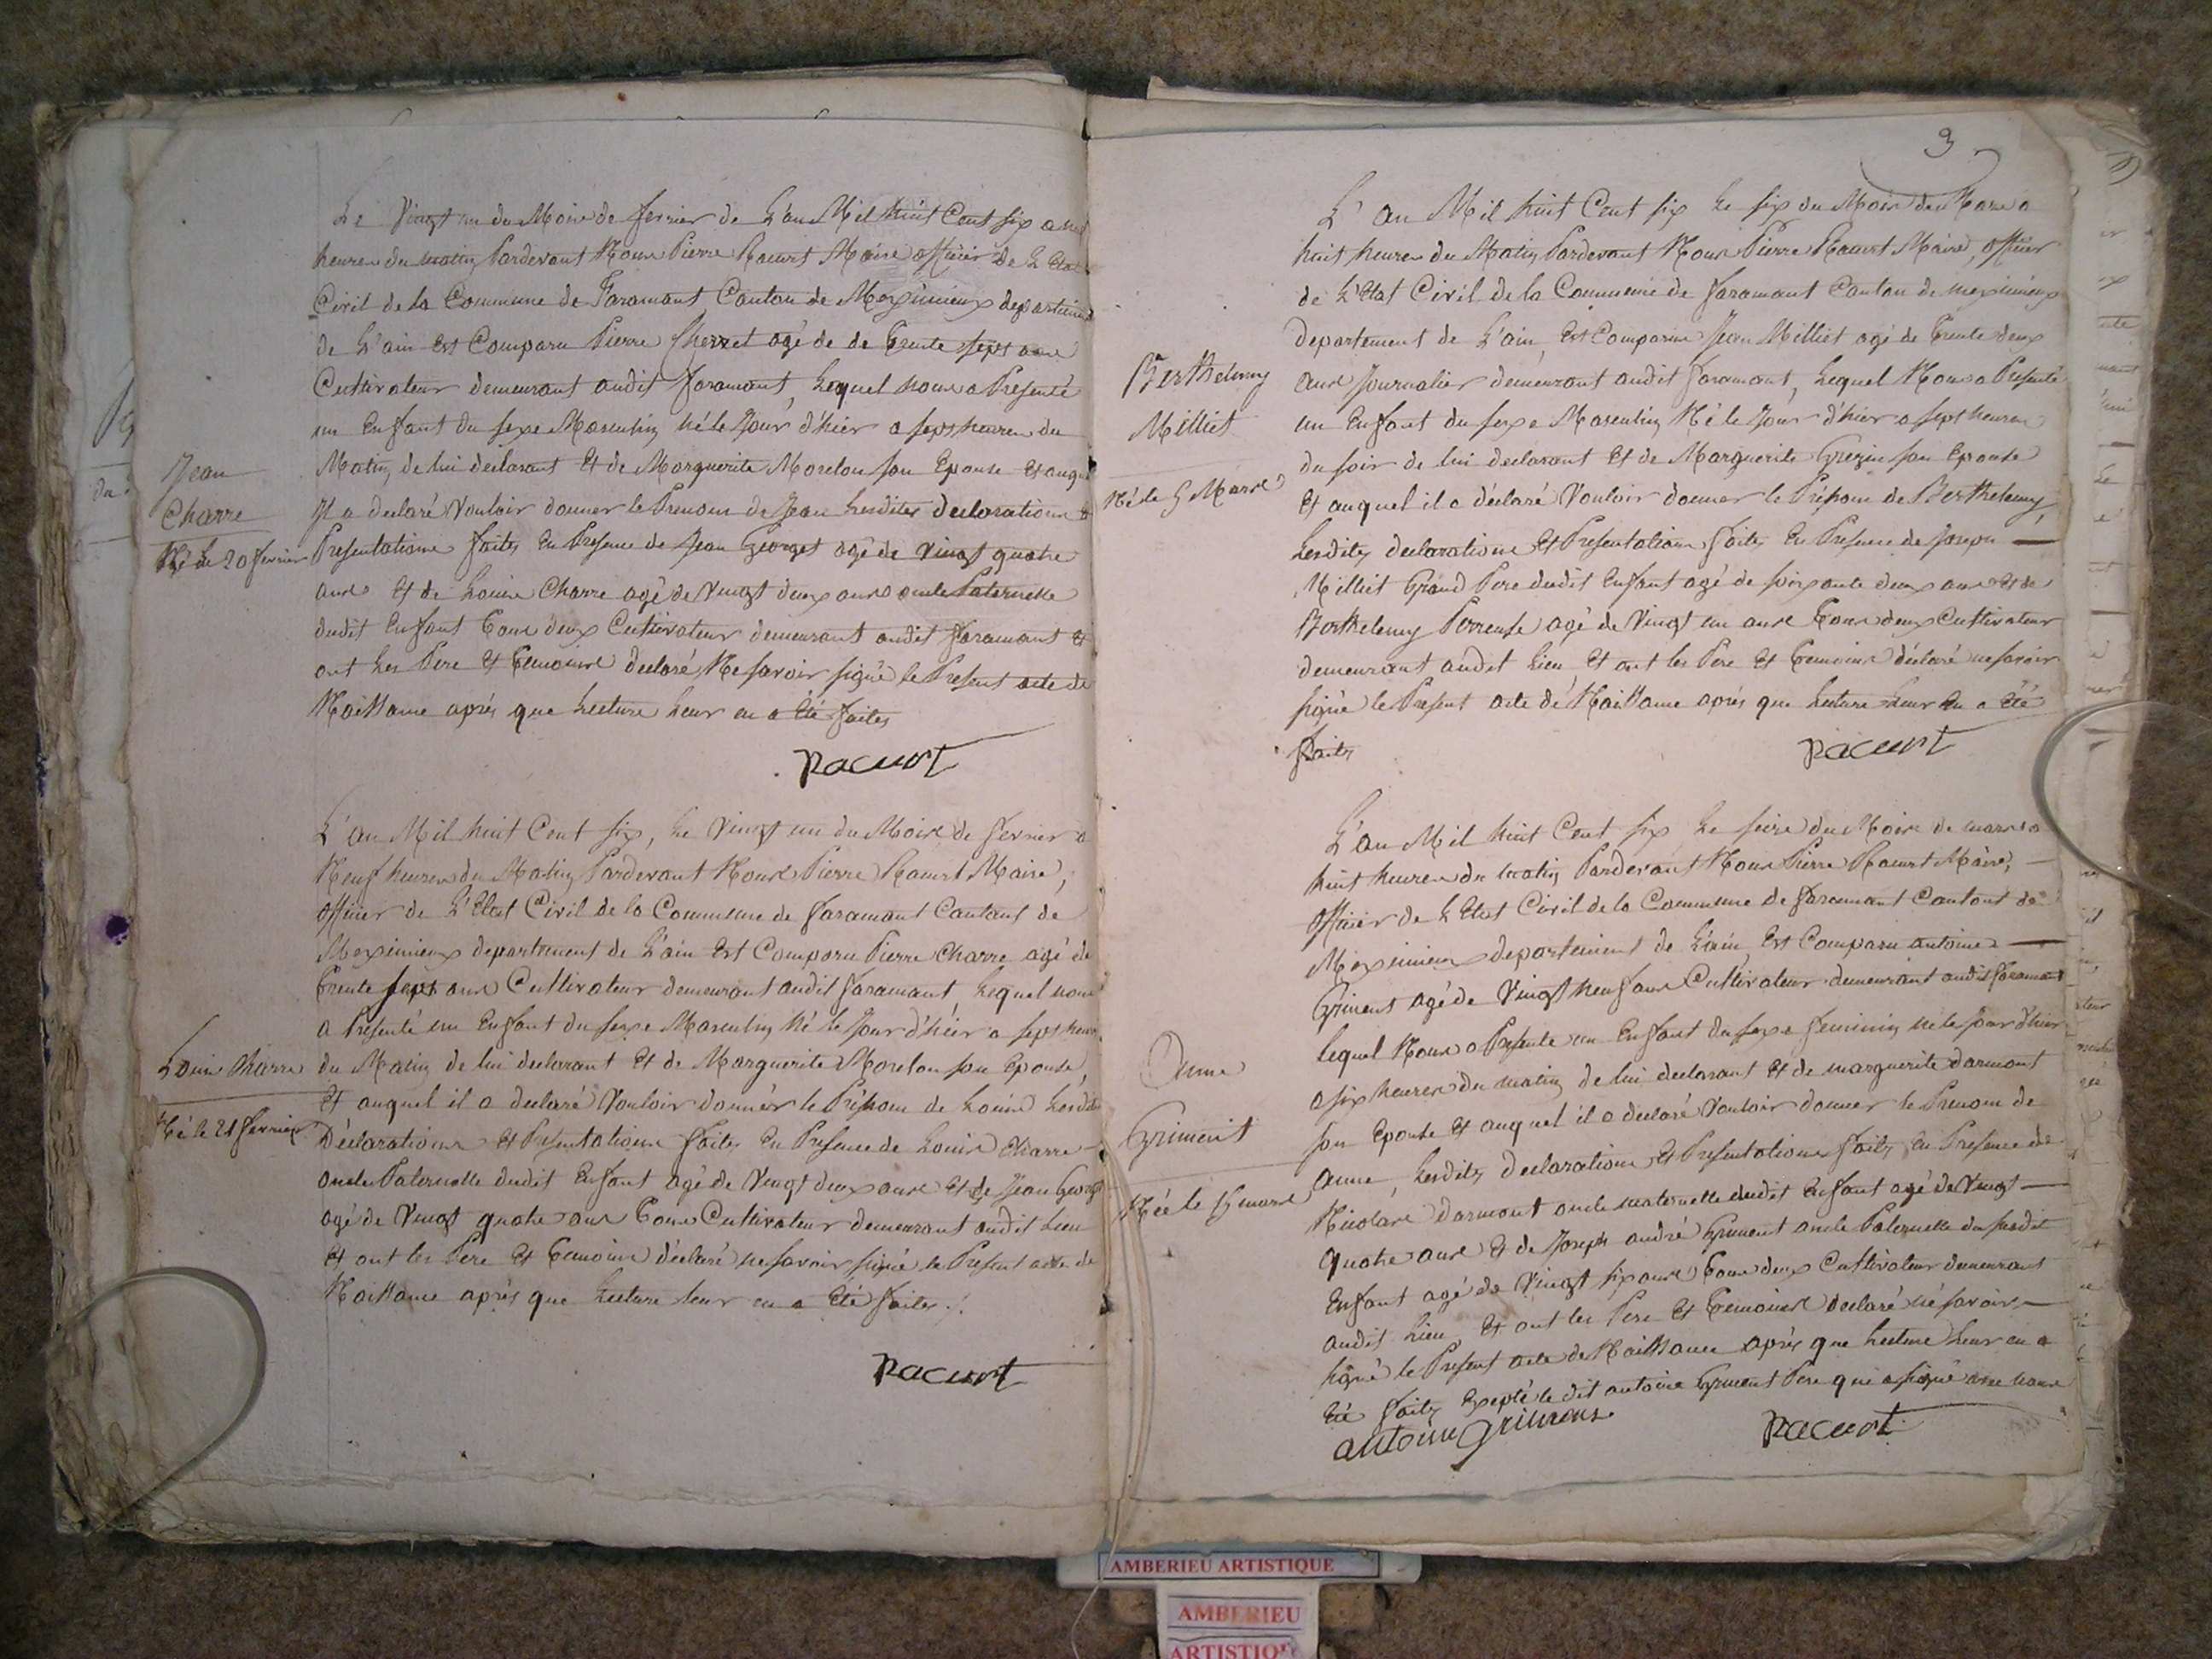 Le Vingt un du Mois de fevrier de L'an Mil huit Cent six a neuf
heures du matin Pardevant Nous Pierre Racurt Maire officier de L'Etat
Civil de la Commune de Faramant Canton de Meximieux departement
de L'ain Est Comparu Pierre Charre agé de de trente sept ans
Cultivateur demeurant audit faramant, Lequel nous a Presenté
un Enfant du sexe Masculin né le Jour d'hier a sept heures du
Matin, de lui declarant Et de Marguerite Morelon son Epouse Et auquel
Jean
Charre
Né le 20 fevrier
Il a declaré Vouloir donner le Prenom de Jean Lesdites declarations Et
Presentations faites En Presence de Jean Georget agé de Vingt quatre
ans Et de Louis Charre agé de Vingt deux ans oncle Paternelle
dudit Enfant tous deux Cultivateur demeurant audit faramant Et
ont Les Pere Et temoins declaré Ne savoir signé le Present acte de
Naissance après que Lecture Leur en a Eté faites
Racurt
L'an Mil huit Cent six, Le Vingt un du Mois de fevrier a
Neuf heures du Matin Pardevant Nous Pierre Racurt Maire,
officier de L'Etat Civil de la Commune de faramant Cantont de
Meximieux departement de L'ain Est Comparu Pierre Charre agé de
trente sept ans Cultivateur demeurant audit faramant, Lequel nous
a Presenté un Enfant du sexe Masculin Né le Jour d'hier a sept heures
Louis Charre
Né le 21 fevrier
du Matin de lui declarant Et de Marguerite Morelon son Epouse,
Et auquel il a declaré Vouloir donner le Prénom de Louis Lesdites
Déclarations Et Presentations faites En Presence de Louis Charre
oncle Paternelle dudit Enfant agé de Vingt deux ans Et de Jean Georget
agé de Vingt quatre ans tous Cultivateur demeurant audit Lieu
Et ont les Pere Et temoins déclaré ne savoir signé le Present acte de
Naissance après que Lecture leur en a Eté faites ./.
Racurt
3
L'an Mil huit Cent six le six du Mois de Mars a
huit heures du Matin Pardevant Nous Pierre Racurt Maire, officier
de L'Etat Civil de la Commune de faramant Canton de meximieux
departement de L'ain, Est Comparu Jean Milliet agé de trente deux
Berthelemy
Milliet
Né le 5 Mars
ans Journalier demeurant audit faramant, Lequel Nous a Presenté
un Enfant du sexe Masculin Né le Jour d'hier a sept heures
du soir de lui declarant Et de Marguerite son Epouse
Et auquel il a déclaré Vouloir donner le Prénom de Berthelemy,
Lesdites declarations Et Presentations faites En Presence de Joseph
Milliet Grand Pere dudit Enfant agé de soixante deux ans Et de
Berthelemy agé de Vingt un ans tous deux Cultivateur
demeurant audit Lieu, Et ont les Pere Et temoins déclaré ne savoir
signé le Present acte de Naissance après que Lecture Leur En a Eté
faites
Racurt
L'an Mil huit Cent six Le seize du Mois de mars a
huit heures du matin Pardevant Nous Pierre Racurt Maire,
officier de L'Etat Civil de la Commune de faramant Cantont de
Meximieux departement de L'ain Est Comparu antoine
Griment agé de Vingt neuf ans Cultivateur demeurant audit faramant
Anne
Griment
Née le 15 mars
lequel Nous a Presenté un Enfant du sexe feminin né le jour d'hier
a six heures du matin de lui declarant Et de marguerite darmont
son Epouse Et auquel il a declaré Vouloir donner le Prenom de
anne, Lesdites Declarations Et Presentations faites En Presence de
Nicolas darmont oncle maternelle dudit Enfant agé de Vingt
quatre ans Et de Joseph andré Griment oncle Paternelle du susdit
Enfant agé de Vingt six ans tous deux Cultivateur demeurant
audit Lieu, Et ont les Pere Et temoins declaré né savoir
signé le Present acte de Naissance après que Lecture Leur en a
Eté faites Exepté le dit antoine Griment Pere qui a signé avec nous
antoine Grimens
Racurt
AMBERIEU ARTISTIQUE
AMBERIEU
ARTISTIQ